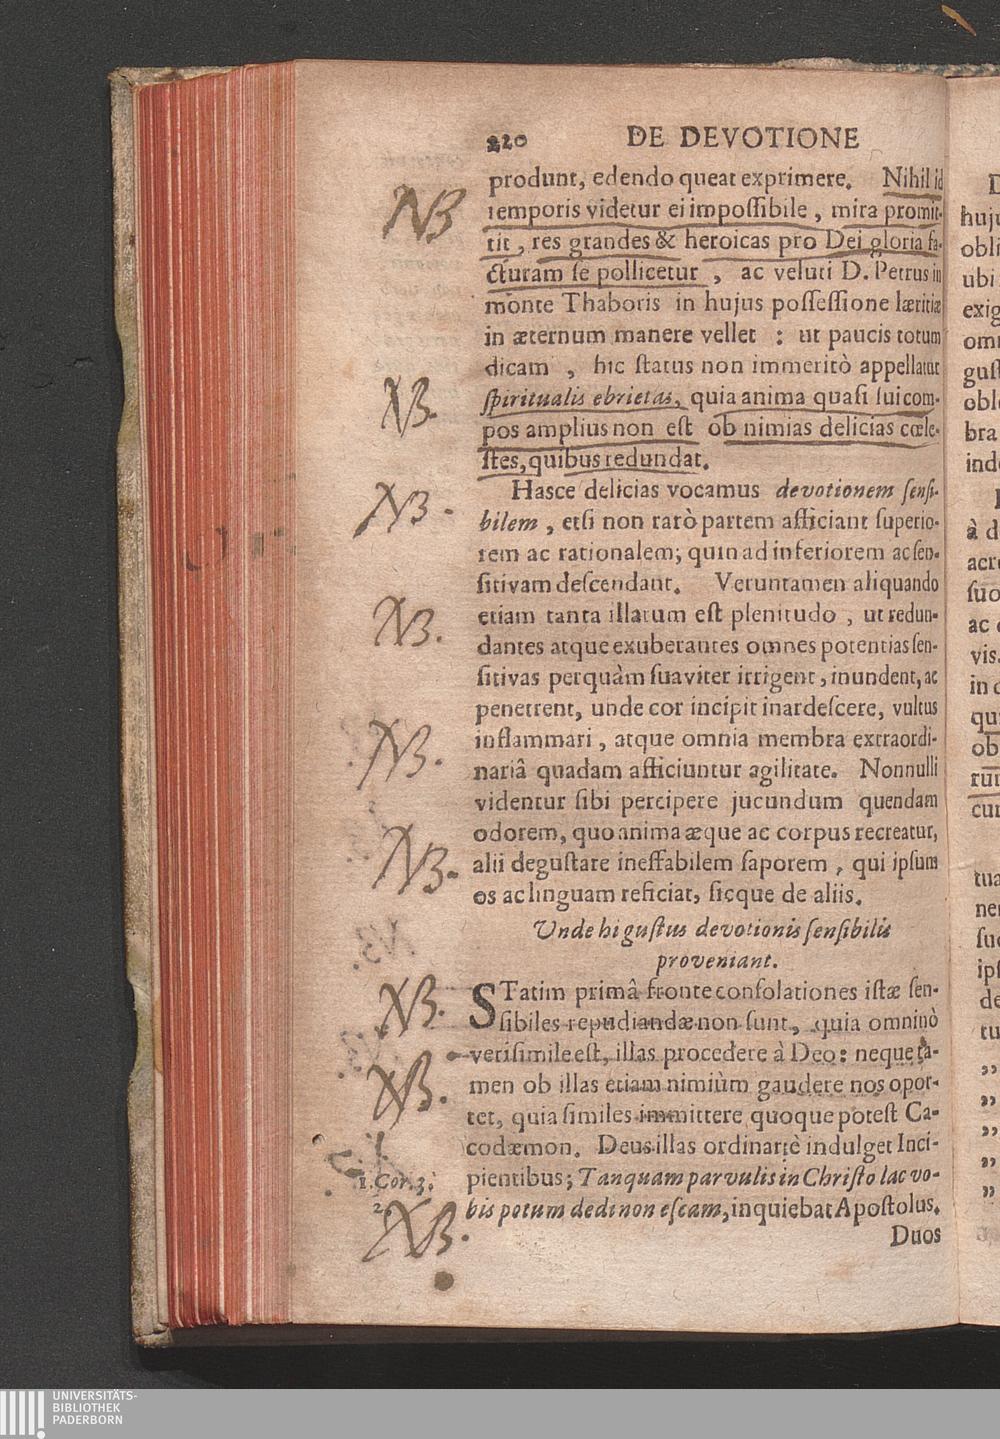 220 DE DEVOTIONE
produnt, edendo queat exprimere. Nihil id
temporis videtur ei impossibile, mira promit-
tit, res grandes & heroicas pro Dei gloria fa-
cturam se pollicetur, ac veluti D. Petrus in
monte Thaboris in hujus possessione lætitiæ
in æternum manere vellet : ut paucis totum
dicam, hic status non immeritò appellatur
spiritualis ebrietas, quia anima quasi sui com-
pos amplius non est ob nimias delicias cœle-
stes, quibus redundat.
Hasce delicias vocamus devotionem sensi-
bilem, etsi non rarò partem afficiant superio-
rem ac rationalem; quin ad inferiorem ac sen-
sitivam descendant. Veruntamen aliquando
etiam tanta illarum est plenitudo, ut redun-
dantes atque exuberantes omnes potentias sen-
sitivas perquàm suaviter irrigent, inundent, ac
penetrent, unde cor incipit inardescere, vultus
inflammari, atque omnia membra extraordi-
nariâ quadam afficiuntur agilitate. Nonnulli
videntur sibi percipere jucundum quendam
odorem, quo anima æque ac corpus recreatur,
alii degustare ineffabilem saporem, qui ipsum
os ac linguam reficiat, sicque de aliis.
Unde hi gustus devotionis sensibilis
proveniant.
STatim primâ fronte consolationes istæ sen-
sibiles repudiandæ non sunt, quia omninò
verisimile est, illas procedere à Deo: neque ta-
men ob illas etiam nimiùm gaudere nos opor-
tet, quia similes immittere quoque potest Ca-
codæmon. Deus illas ordinariè indulget Inci-
pientibus; Tanquam parvulis in Christo lac vo-
bis potum dedi non escam, inquiebat Apostolus.
Duos
NB
NB.
NB.
NB.
NB.
NB.
NB.
NB.
1. Cor. 3.
2.
NB.
D
huju
obli
ubi
exig
omn
gust
oble
bra
inde
à d
acre
suo
ac
vis.
in
qui
ob
run
cur
tua
ner
suc
ips
de
tu
”
”
”
”
”
UNIVERSITÄTS-
BIBLIOTHEK
PADERBORN